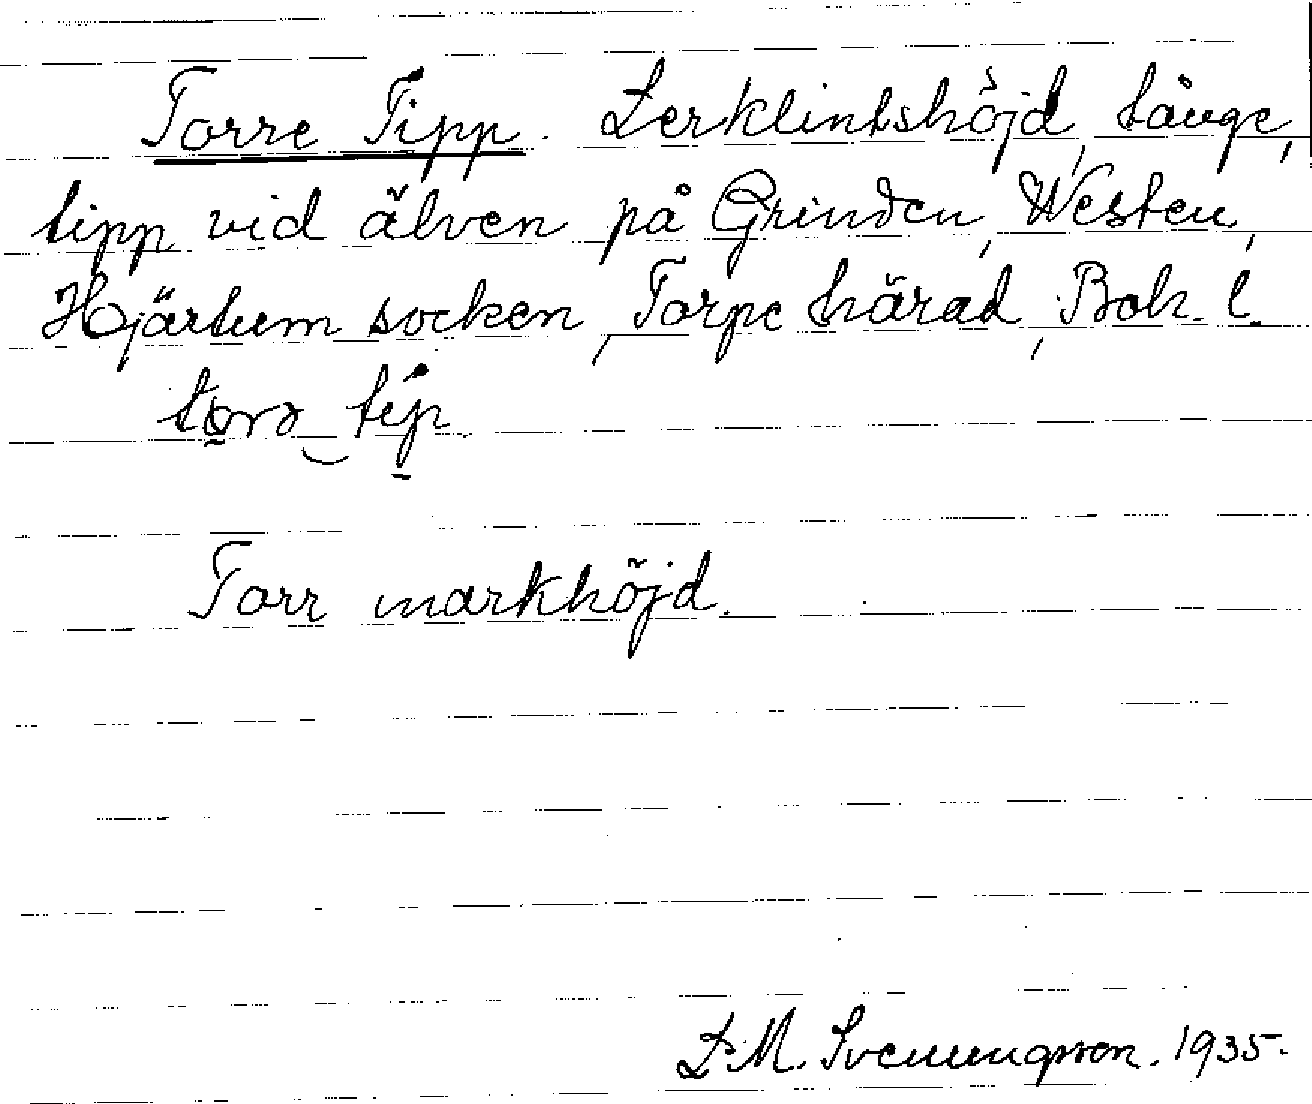 Torre Tipp. Lerklintshöjd, tånge,
tipp vid älven på Grinden, Westen,
Hjärtum socken, Torpe härad, Boh. l.
Torr markhöjd.
L. M. Svenungsson. 1935.